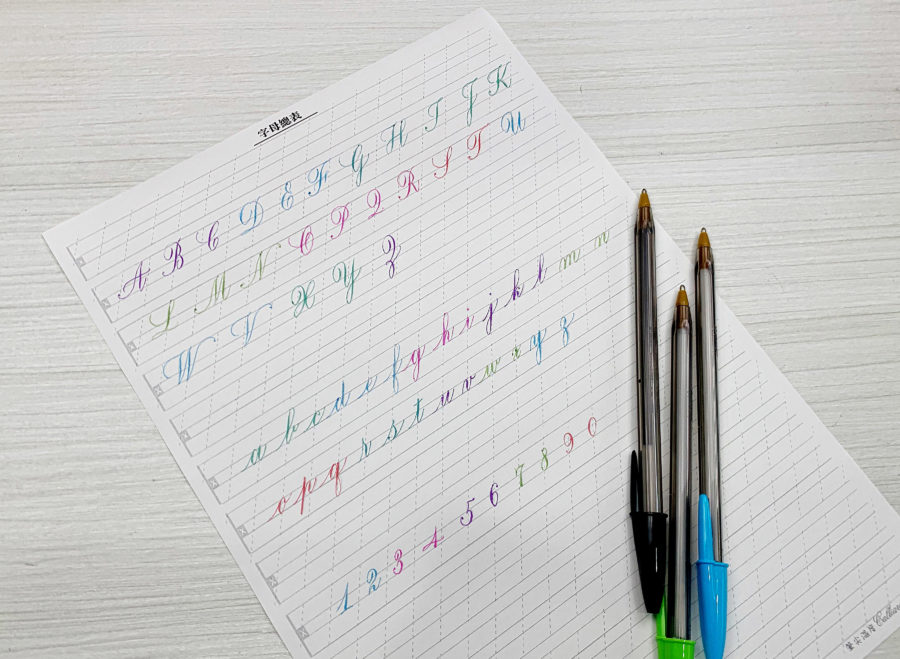 字母總表
A B C D E F G H I J K
L M N O P Q R S T U
W V X Y Z
a b c d e f g h i j k l m n
o p q r s t u v w x y z
1 2 3 4 5 6 7 8 9 0
筆尖溫度